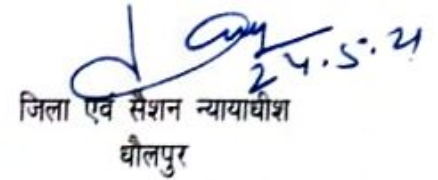 24.5.21
जिला एवं सैशन न्यायाधीश
धौलपुर